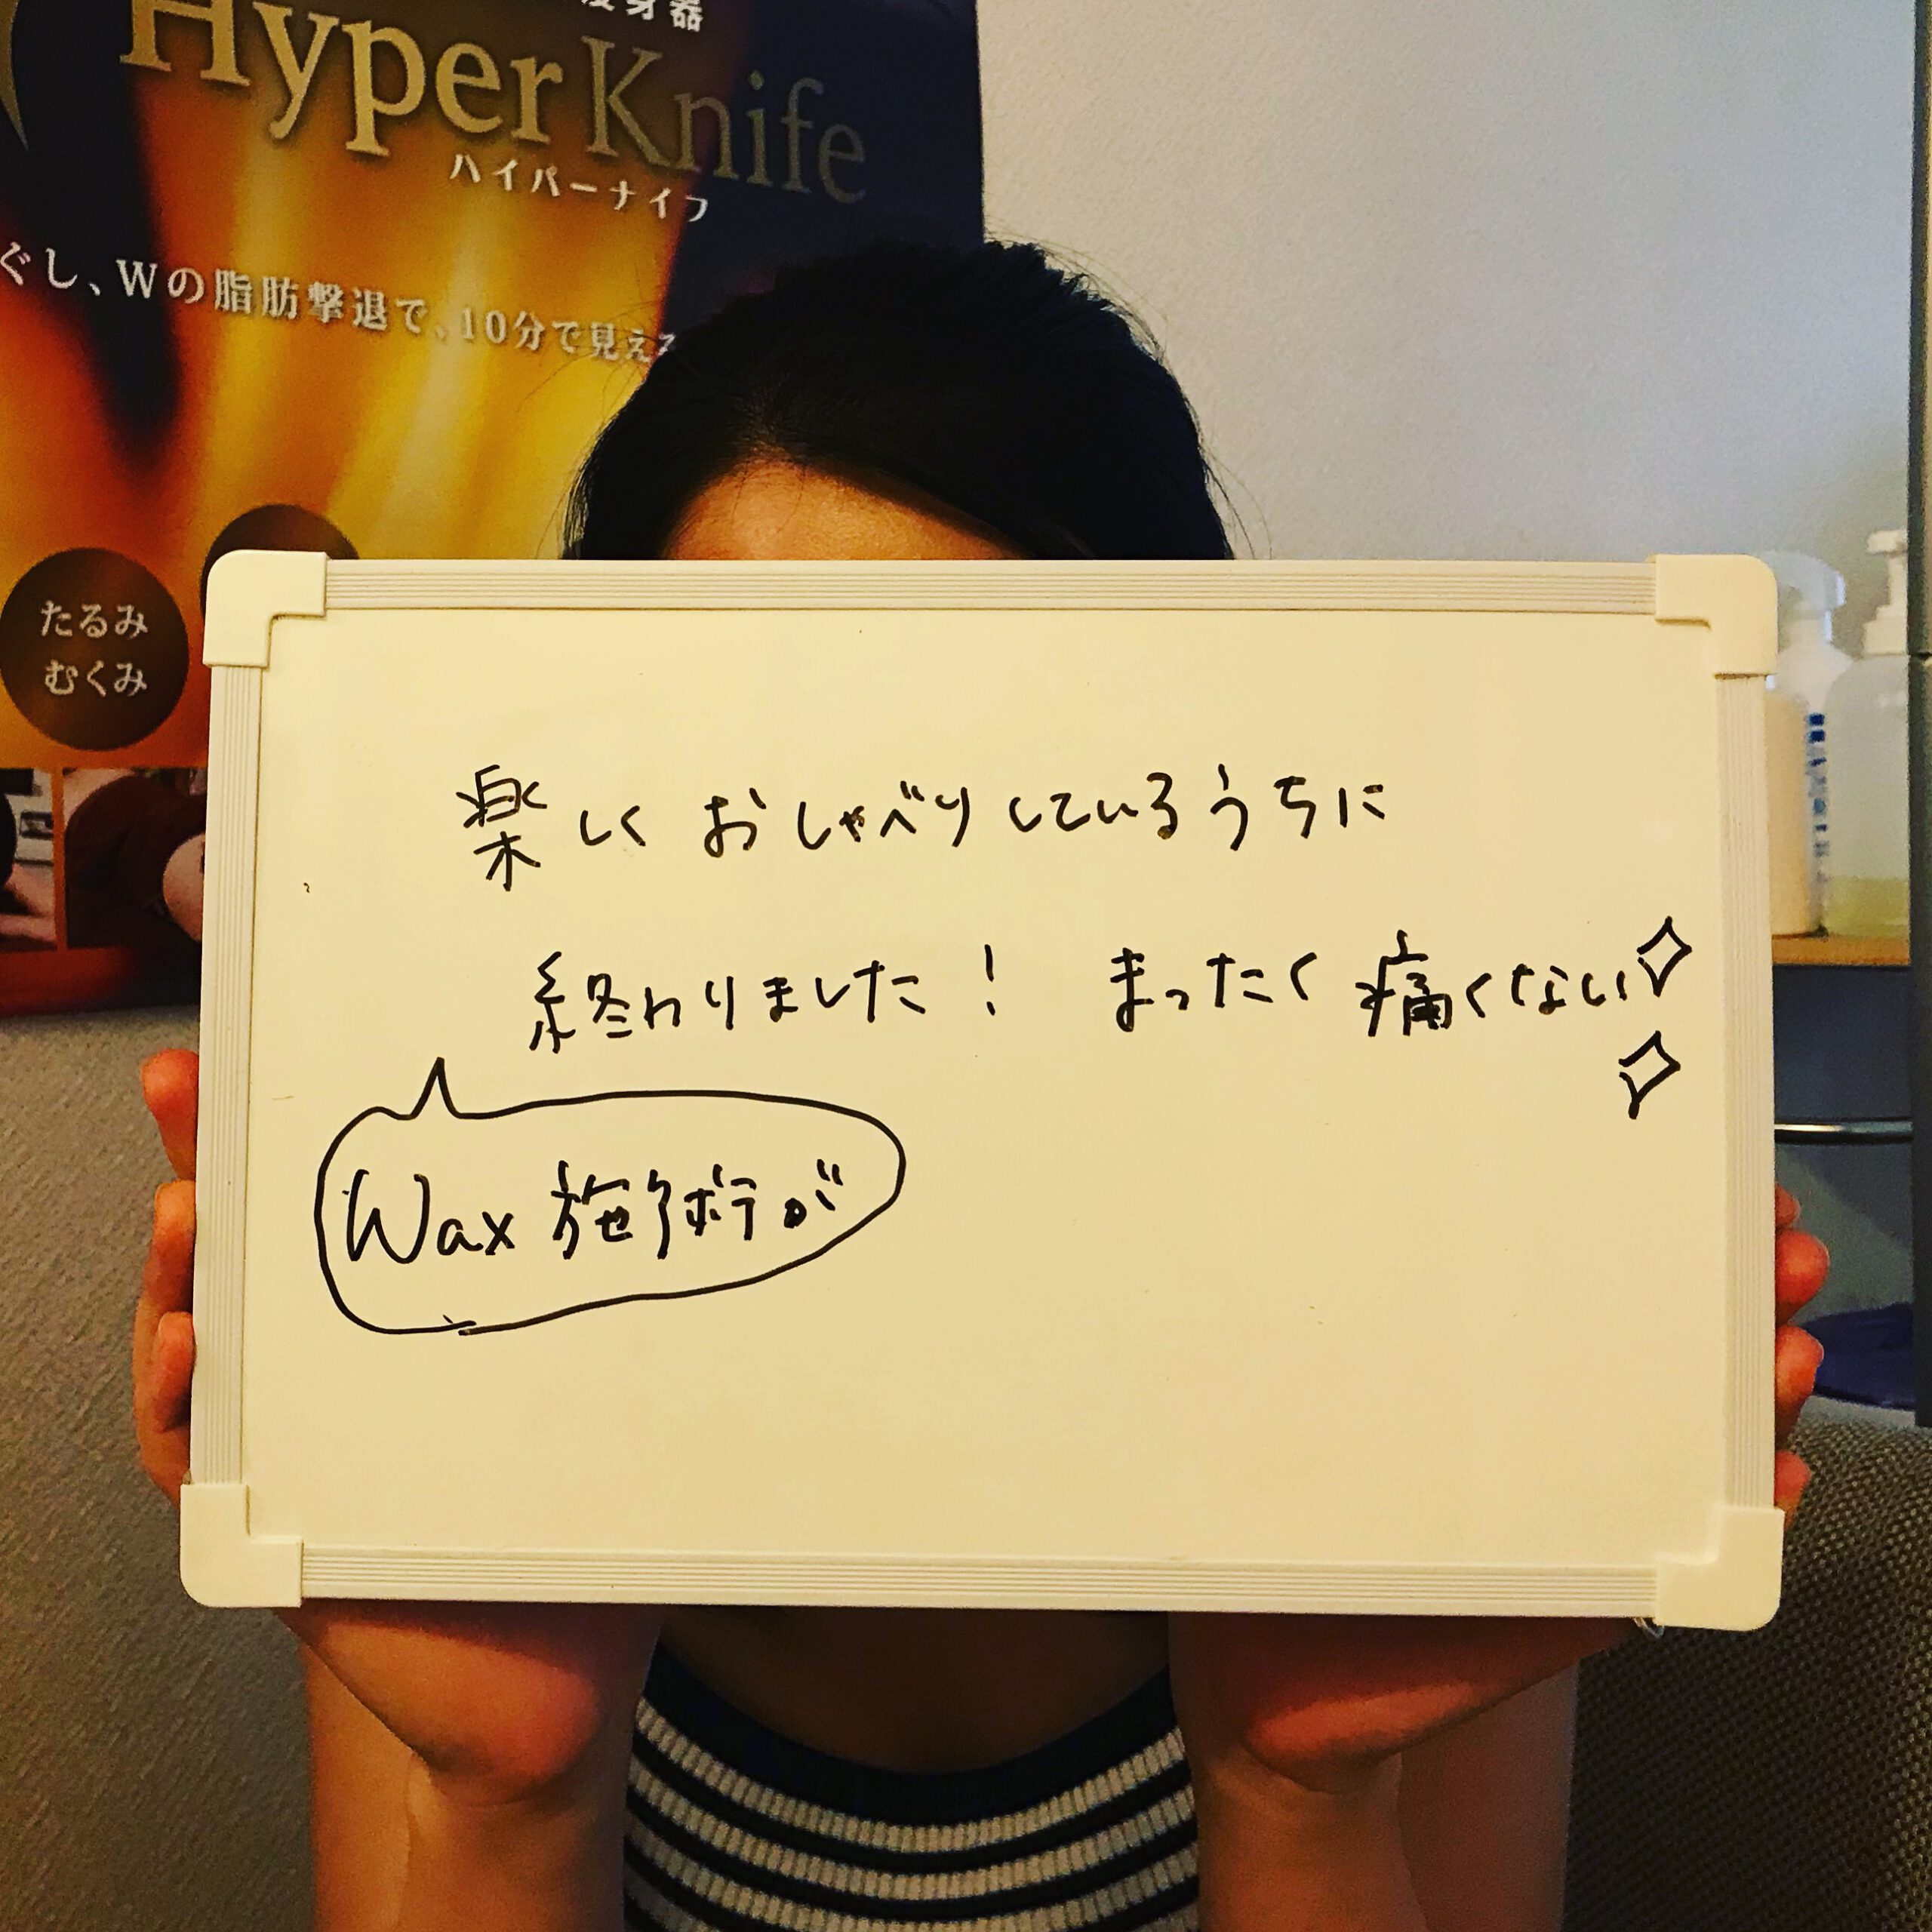 Hyper Knife
ハイパーナイフ
ぐし、Wの脂肪撃退で、10分で見える
たるみ
むくみ
楽しくおしゃべりしているうちに
終わりました! まったく痛くない
Wax 施術が